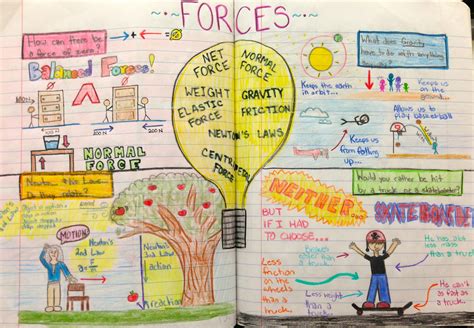 FORCES
How can there be
a force of zero?
Balanced Forces!
200 N
200 N
NORMAL
FORCE
Newton
2nd Law
MOTION
Newton's
2nd Law
Newton's
3rd Law
action
reaction
NET
FORCE
NORMAL
FORCE
WEIGHT
GRAVITY
ELASTIC
FORCE
FRICTION
NEWTON'S LAWS
CENTRIPETAL
FORCE
What does Gravity
have to do with anything
Keeps the earth
in orbit...
Keeps us
on the
ground...
Allows us to
play basketball
Keeps us
from falling
up...
Would you rather be hit
by a truck or a skateboarder?
NEITHER
BUT
IF I HAD
TO CHOOSE...
SKATEBOARDER
Breaks
easier than
a truck
He has also
less mass
than a truck
Less
friction on
the wheels
than a
truck.
Less weight
than a
truck
He can't go
as fast as
a truck